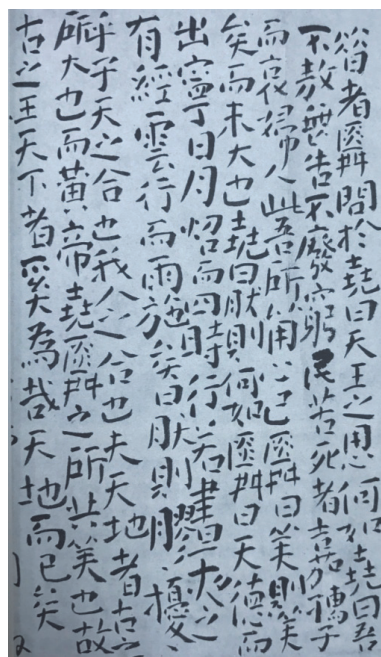 昔者舜問於堯曰天王之用心何如堯曰吾
不敖無告不廢窮民苦死者嘉孺子
而哀婦人此吾所以用心已舜曰美則美
矣而未大也堯曰然則何如舜曰天德而
出寧日月照而四時行若晝夜之
有經雲行而雨施矣曰然則膠膠擾擾
乎子天之合也我人之合也夫天地者古之
所大也而黃帝堯舜之所共美也故
古之王天下者奚為哉天地而已矣